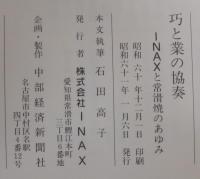 巧と業の協奏
INAXと常滑焼のあゆみ
昭和六十年十二月二日 印刷
昭和六十一年一月六日 発行
本文執筆 石田高子
発行者 株式会社INAX
愛知県常滑市鯉江本町
三丁目6番地
企画・製作 中部経済新聞社
名古屋市中村区名駅
四丁目4番12号